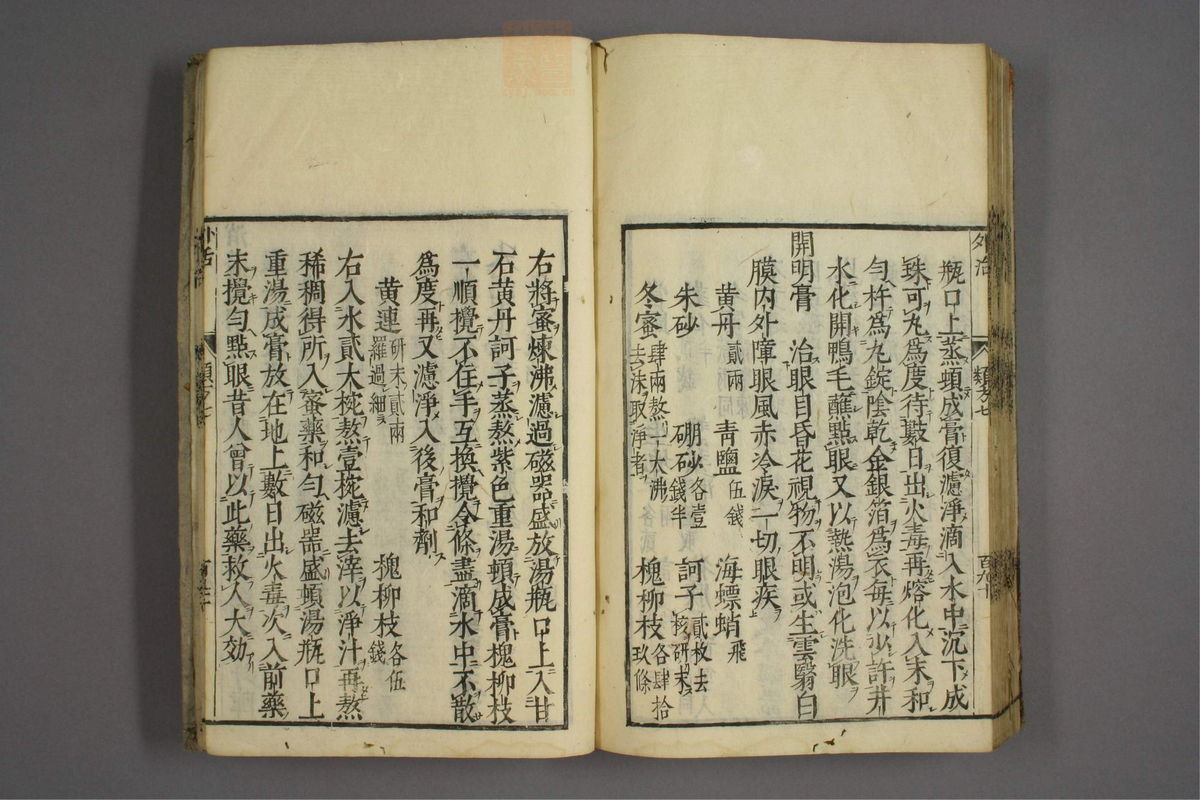 瓶口上蒸頓成膏復濾淨滴入水中沉下成
珠可丸為度待數日出火毒再熔化入末和
勻杵為丸錠陰乾金銀箔為衣每以少許井
水化開鴨毛蘸點眼又以熱湯泡化洗眼
開明膏 治眼目昏花視物不明或生雲翳白
膜内外障眼風赤冷淚一切眼疾
黄丹貳兩 青鹽伍錢 海螵蛸飛
朱砂 硼砂各壹錢半 訶子貳枚去核研末
冬蜜肆兩熬一大沸去沫取淨者 槐柳枝各肆拾玖條
右將蜜煉沸濾過磁器盛放湯瓶口上入甘
石黄丹訶子蒸熬紫色重湯頓成膏槐柳枝
一順攪不住手互換攪令條盡滴水中不散
為度再又濾淨入後膏和劑
黄連研末貳兩羅過細 槐柳枝各伍錢
右入水貳大椀熬壹椀濾去滓以淨汁再熬
稀稠得所入蜜藥和勻磁器盛頓湯瓶口上
重湯成膏放在地上數日出火毒次入前藥
末攪勻點眼昔人曾以此藥救人大効